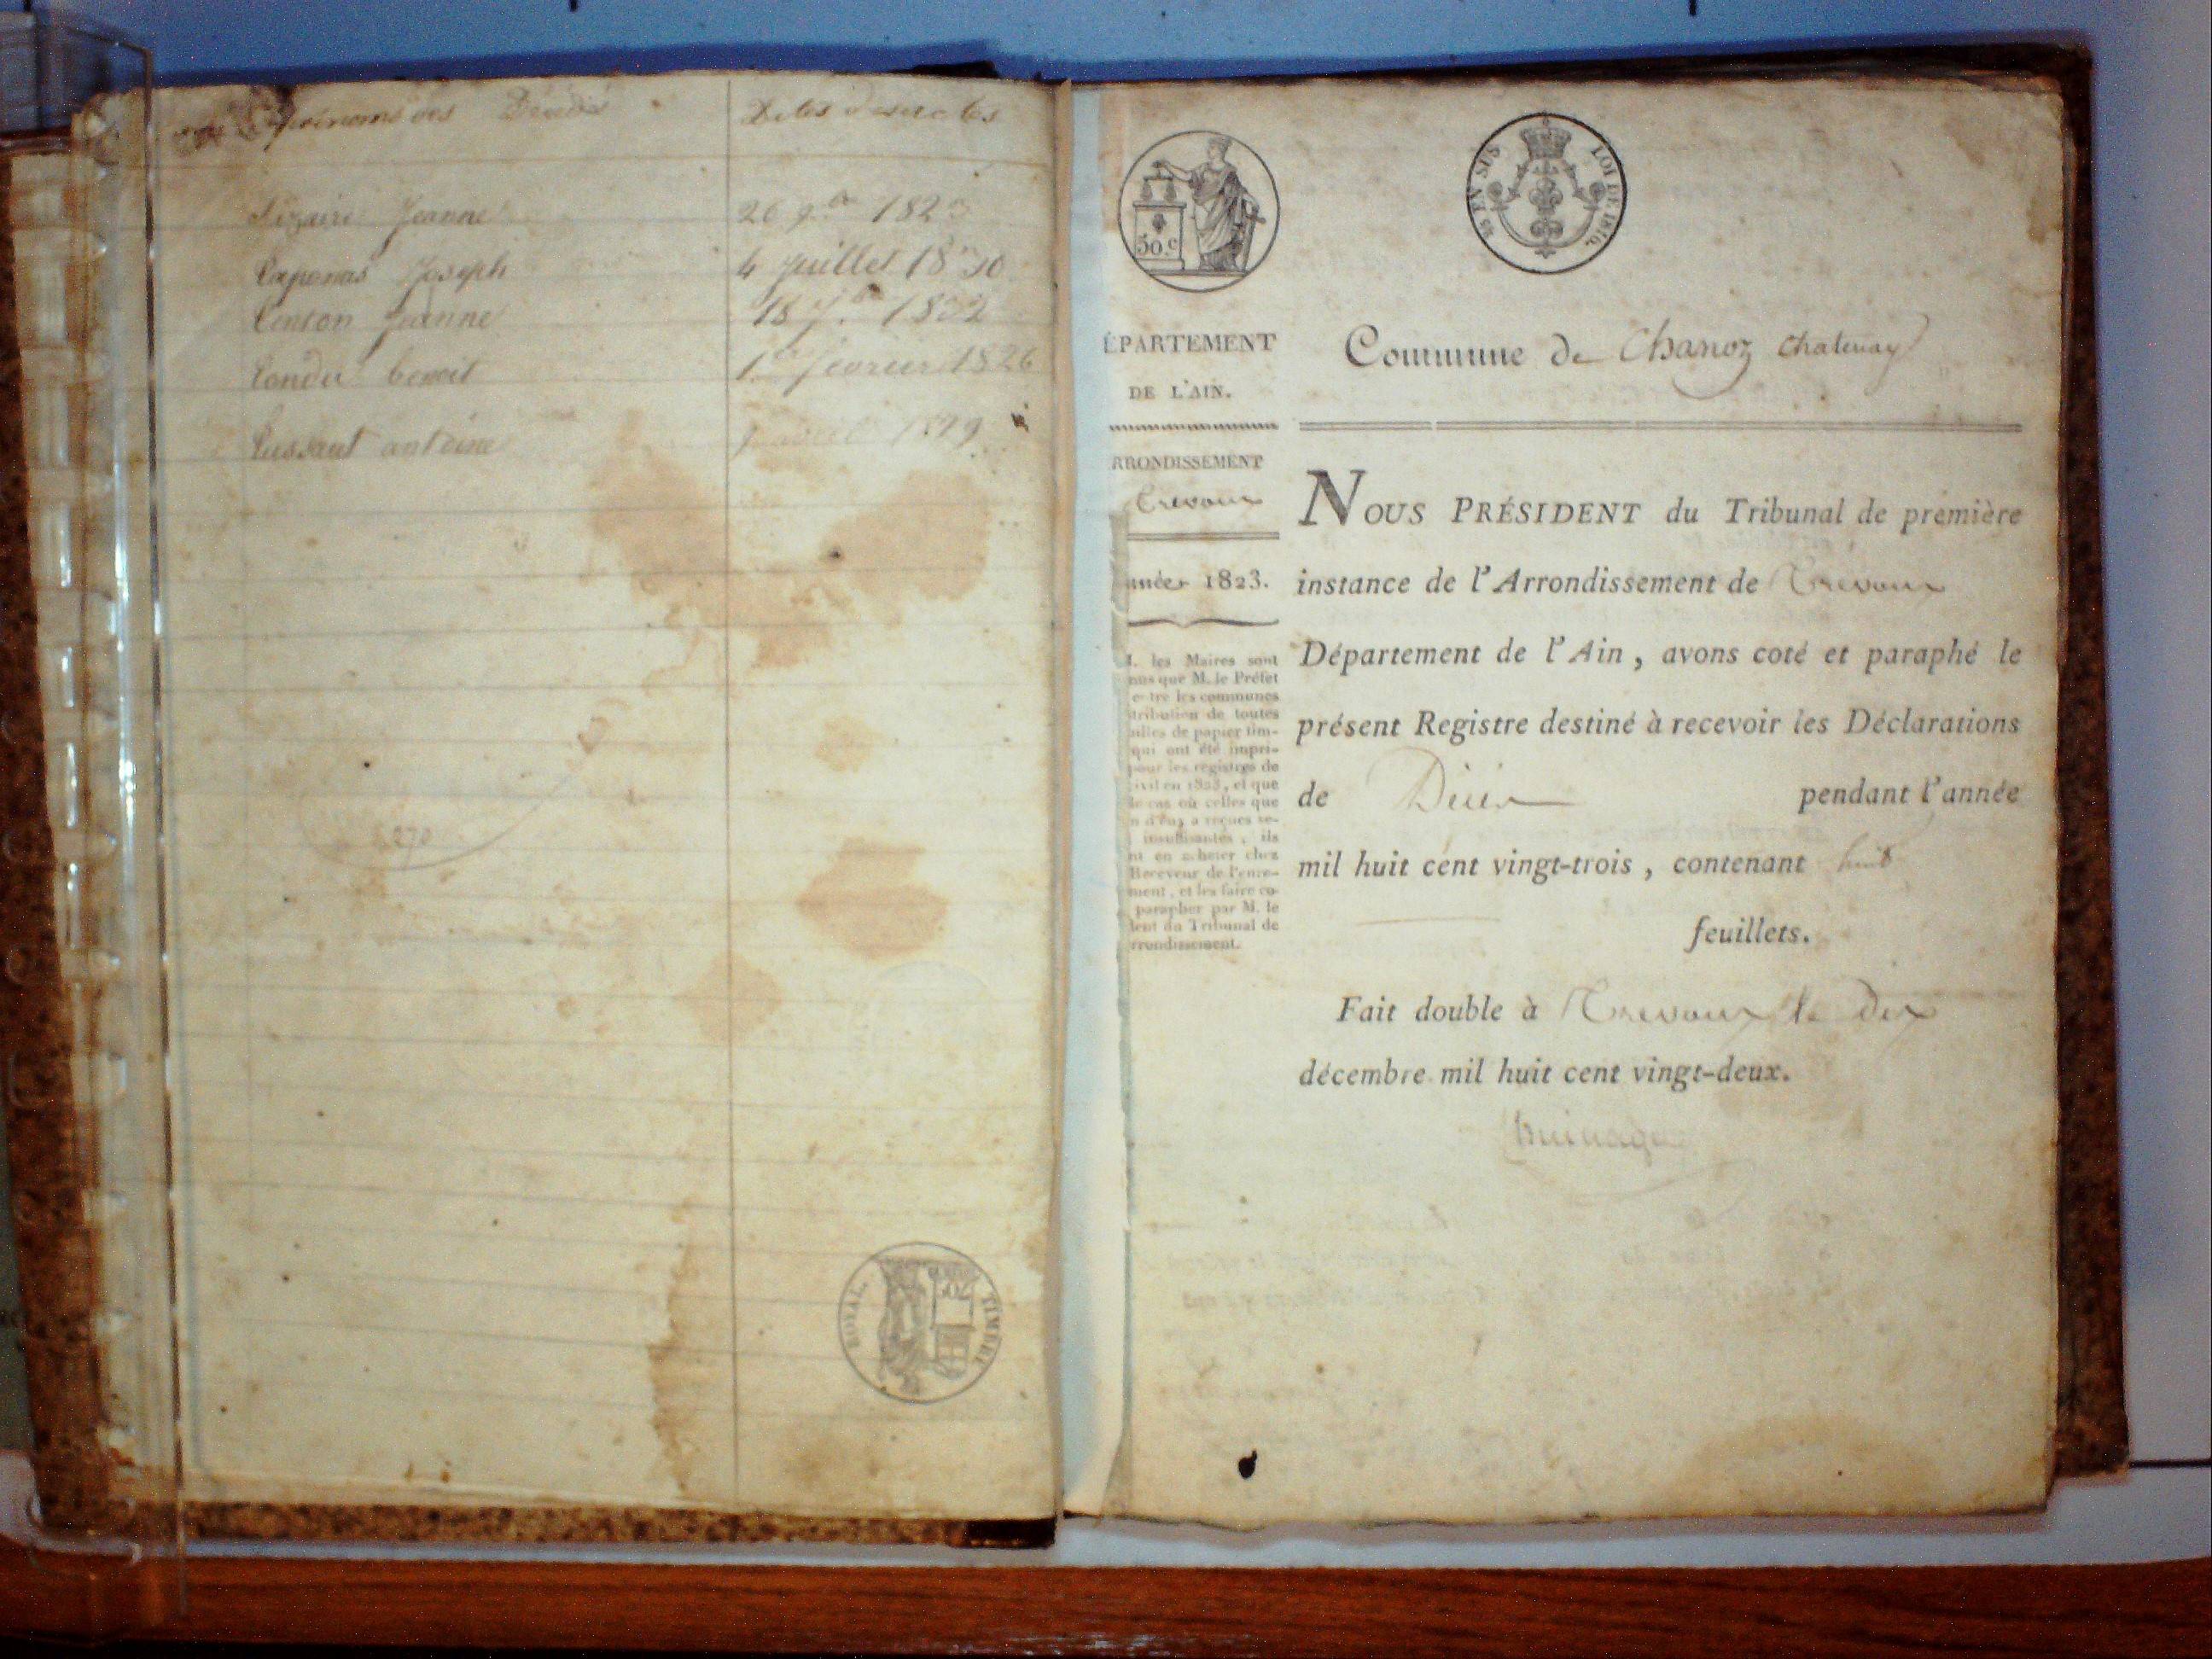 prénoms des Décédés
Dates des actes
Jeanne
26 9.re 182
Joseph
4 juillet 1830
Jeanne
18 7.bre 1832
benoit
1.er fevrier 1826
antoine
1829
270
TIMBRE ROYAL.
50 c
EN SUS
LOI DE 1816.
ÉPARTEMENT
DE L'AIN.
Commune de Chanoz Chatenay
RRONDISSEMENT
Trevoux
nnée 1823.
M. les Maires sont
nus que M. le Préfet
e tre les communes
tribution de toutes
uilles de papier tim-
qui ont été impri-
pour les registres de
civil en 1823, et que
le cas où celles que
n d'eux a reçues se-
insuffisantes, ils
nt en acheter chez
Receveur de l'enre-
ment, et les faire co-
parapher par M. le
dent du Tribunal de
rrondissement.
NOUS PRÉSIDENT du Tribunal de première
instance de l'Arrondissement de Trevoux
Département de l'Ain, avons coté et paraphé le
présent Registre destiné à recevoir les Déclarations
de Décès pendant l'année
mil huit cent vingt-trois, contenant huit
feuillets.
Fait double à Trevoux le dix
décembre mil huit cent vingt-deux.